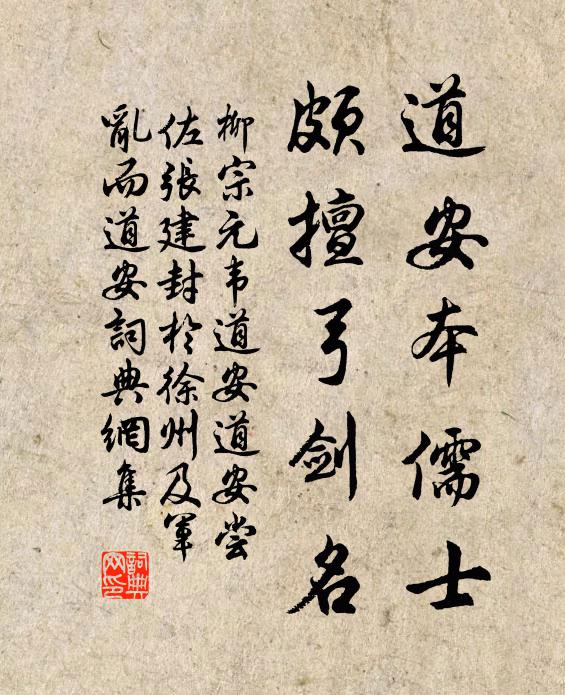 道安本儒士
頗擅弓剑名
柳宗元韦道安道安尝
佐張建封於徐州及軍
亂而道安詞典網集
詞典
网印